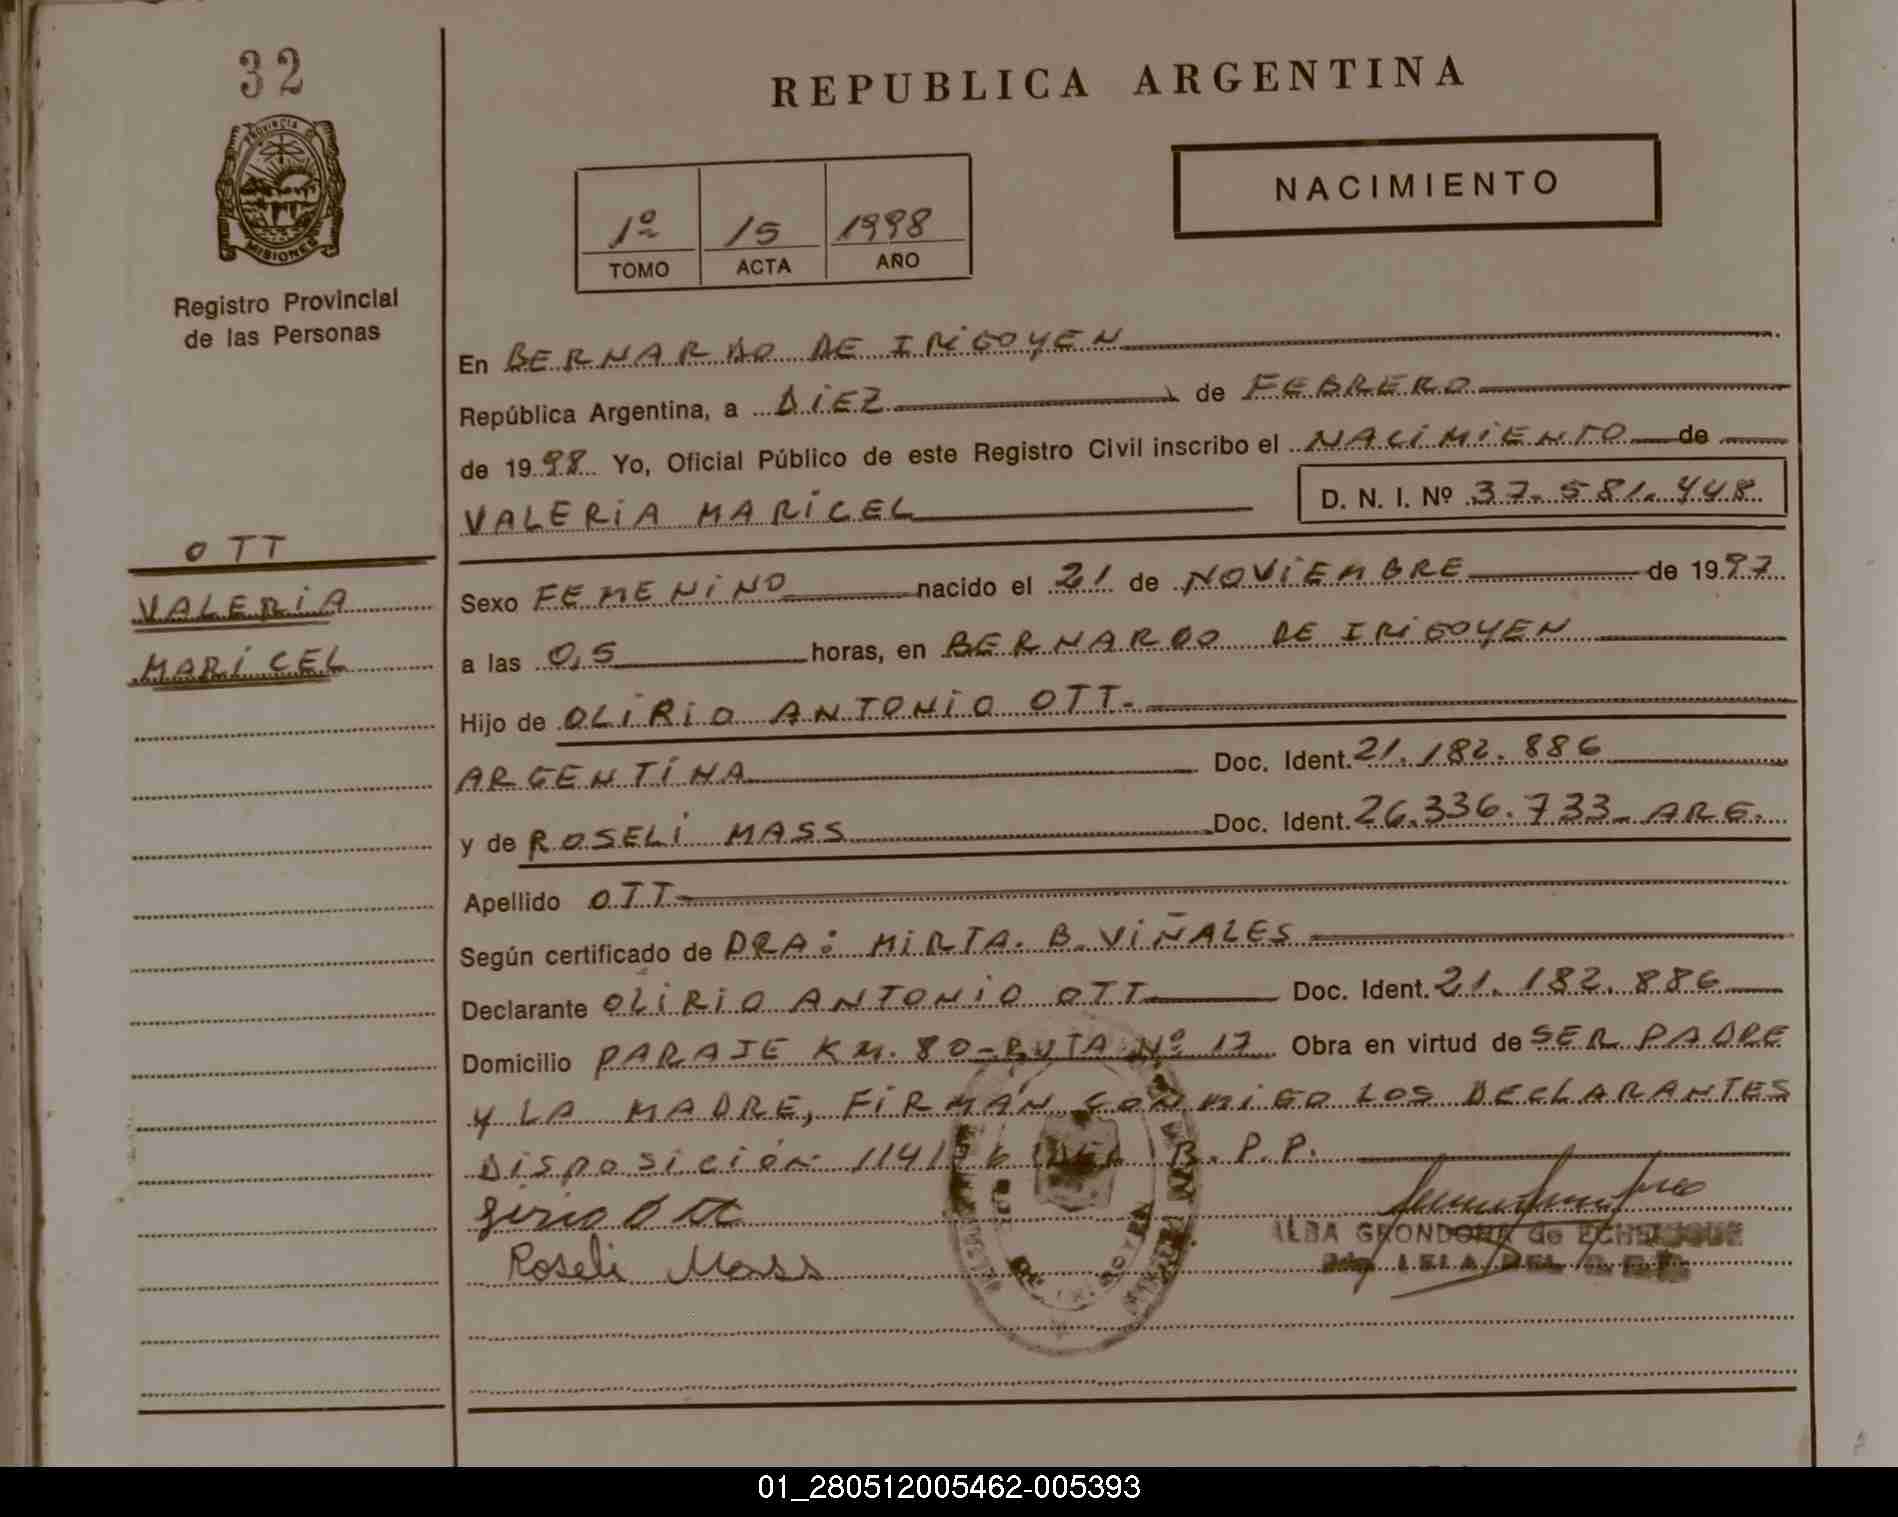 32
REPUBLICA ARGENTINA
PROVINCIA DE
MISIONES
Registro Provincial
de las Personas
NACIMIENTO
1º 15 1998
TOMO ACTA AÑO
En BERNARDO DE IRIGOYEN
República Argentina, a DIEZ de FEBRERO
de 1998 Yo, Oficial Público de este Registro Civil inscribo el NACIMIENTO de
VALERIA MARICEL D. N. I. Nº 37.581.448
OTT
VALERIA
MARICEL
Sexo FEMENINO nacido el 21 de NOVIEMBRE de 1997
a las 0,5 horas, en BERNARDO DE IRIGOYEN
Hijo de OLIRIO ANTONIO OTT.
ARGENTINA Doc. Ident. 21.182.886
y de ROSELI MASS Doc. Ident. 26.336.733 ARG.
Apellido OTT
Según certificado de DRA: MIRTA. B. VIÑALES
Declarante OLIRIO ANTONIO OTT Doc. Ident. 21.182.886
Domicilio PARAJE KM. 80-RUTA Nº 17 Obra en virtud de SER PADRE
Y LA MADRE, FIRMÁN CONMIGO LOS DECLARANTES
DISPOSICIÓN 114 R.P.P.
Ott
Roseli Mass
ALBA GRONDONA de
DEL
01_280512005462-005393